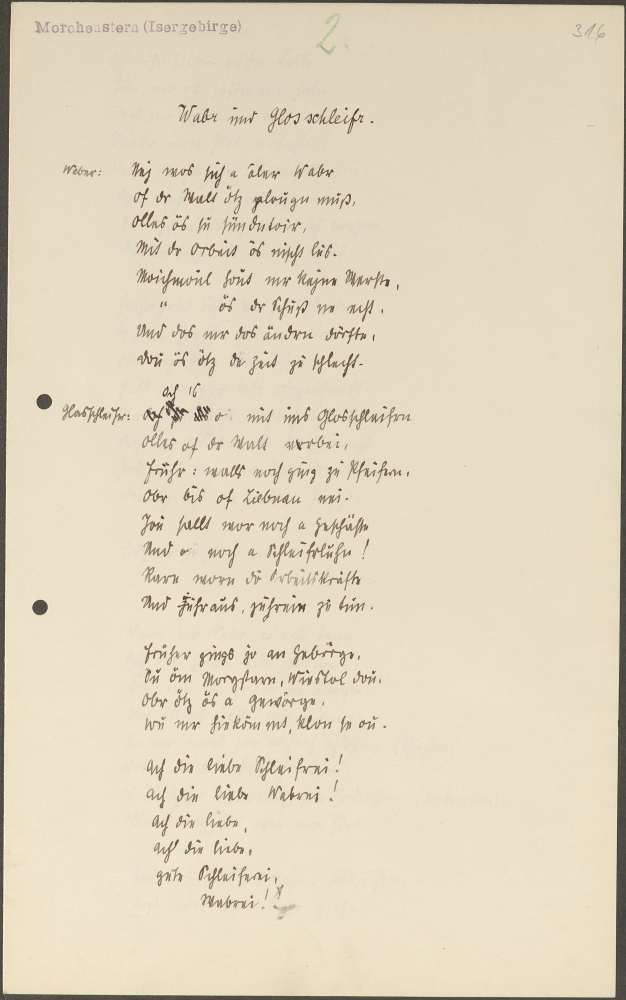 Morchenstern (Isergebirge)
2.
316
Wabr und Glosschleifr.
Weber: Nej wos sich a äler Wabr
of dr Walt ötz plougn muß,
olles ös su sündntoir,
Mit dr Orbeit ös nischt lus.
Moichmoul hout mr kejne Werfte,
" ös dr Schuß ne echt.
Und dos mr dos ändrn dörfte,
dou ös ötz de Zeit zu schlecht.
Glasschleifer: och is
mit uns Glosschleifrn
olles of dr Walt vorbei,
Frühr: walls noch ging zu Pfeifern,
obr bis of Liebnau nei.
Jou sallt wor noch a Geschäfte
Und noch a Schleifrluhn!
Rare worn de Orbeitskräfte
Und Fuhraus, zuhrein zu tun.
Früher gings jo an Gebörge,
Su öm Morgstarn, Wiestol dou.
Obr ötz ös a Gewörge,
wu mr hiekömmt, klon se ou.
Ach die liebe Schleifrei!
Ach die liebe Wabrei!
Ach die liebe,
Ach die liebe,
gute Schleiferei,
Wabrei!